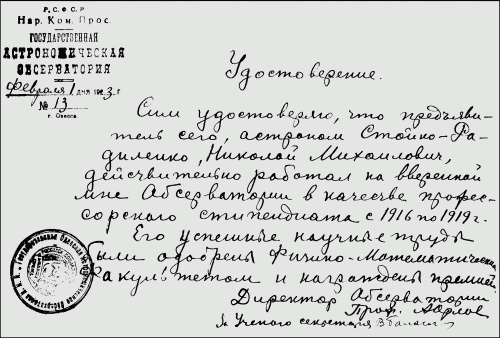 Р. С. Ф. С. Р
Нар. Ком. Прос.
ГОСУДАРСТВЕННАЯ
АСТРОНОМИЧЕСКАЯ
ОБСЕРВАТОРИЯ
Февраля 1 дня 1923 г
№ 13
г. Одесса.
Удостоверение.
Сим удостоверяю, что предъяви-
тель сего, астроном Стойко-Ра-
диленко, Николай Михайлович,
действительно работал на вверенной
мне Абсерватории в качестве профес-
сорского стипендиата с 1916 по 1919 г.
Его успешные научные труды
были одобрены Физико-Математическим
Факультетом и награждены премией.
Директор Абсерватории
Проф. А Орлов
Ученого секретаря